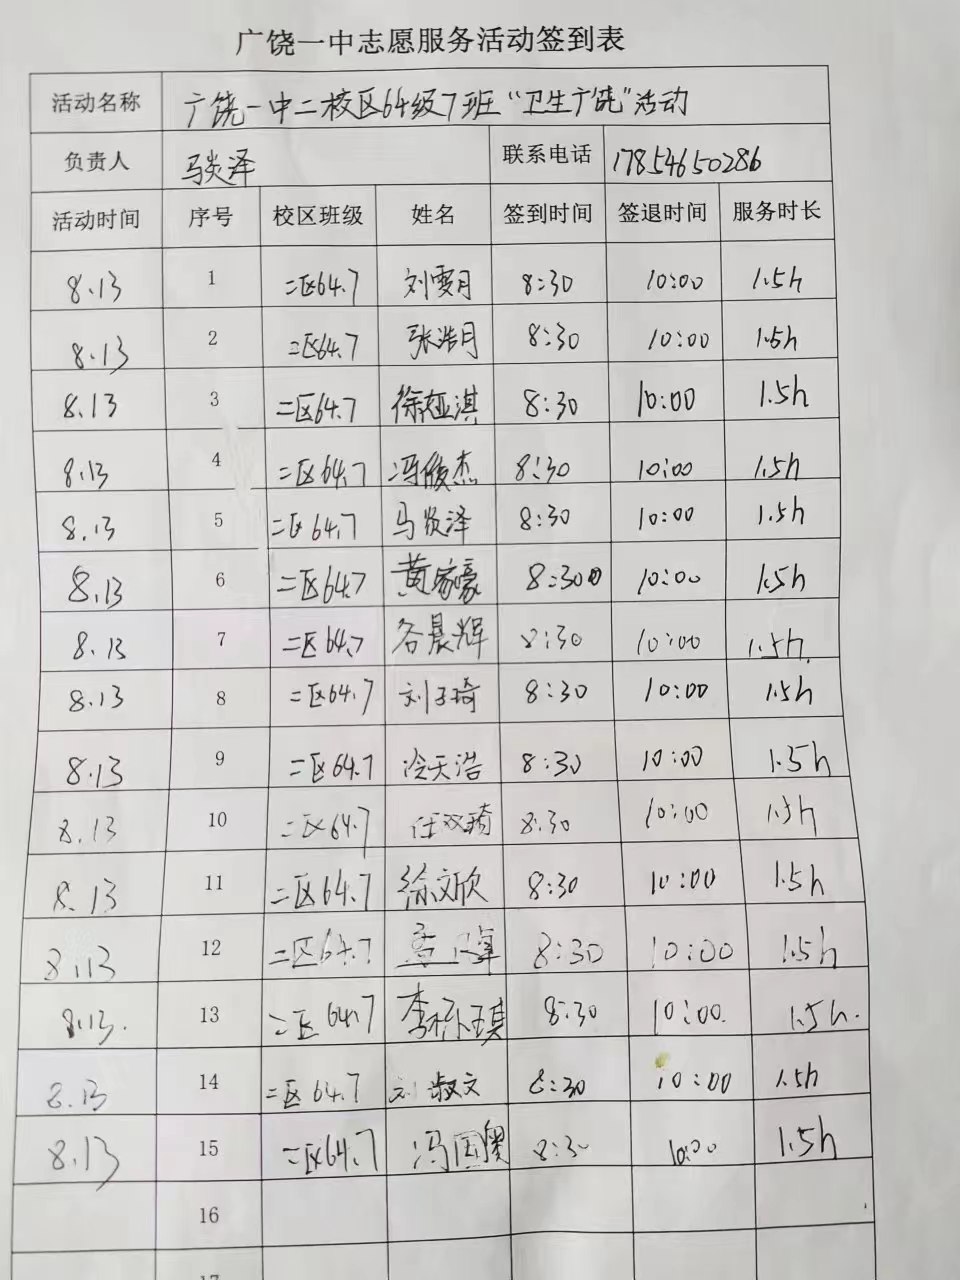 广饶一中志愿服务活动签到表
活动名称 广饶一中二校区64级7班“卫生广饶”活动
负责人 马炎泽 联系电话 17854650286
活动时间 序号 校区班级 姓名 签到时间 签退时间 服务时长
8.13 1 二区64.7 刘雯月 8:30 10:00 1.5h
8.13 2 二区64.7 张浩月 8:30 10:00 1.5h
8.13 3 二区64.7 徐娅淇 8:30 10:00 1.5h
8.13 4 二区64.7 冯俊杰 8:30 10:00 1.5h
8.13 5 二区64.7 马炎泽 8:30 10:00 1.5h
8.13 6 二区64.7 黄家豪 8:30 10:00 1.5h
8.13 7 二区64.7 谷晨辉 8:30 10:00 1.5h
8.13 8 二区64.7 刘子琦 8:30 10:00 1.5h
8.13 9 二区64.7 冷天浩 8:30 10:00 1.5h
8.13 10 二区64.7 任双琦 8:30 10:00 1.5h
8.13 11 二区64.7 徐文欣 8:30 10:00 1.5h
8.13 12 二区64.7 8:30 10:00 1.5h
8.13. 13 二区 64.7 8:30 10:00. 1.5h.
8.13 14 二区 64.7 刘淑文 8:30 10:00 1.5h
8.13 15 二区64.7 冯国奥 8:30 10:00 1.5h
16
17